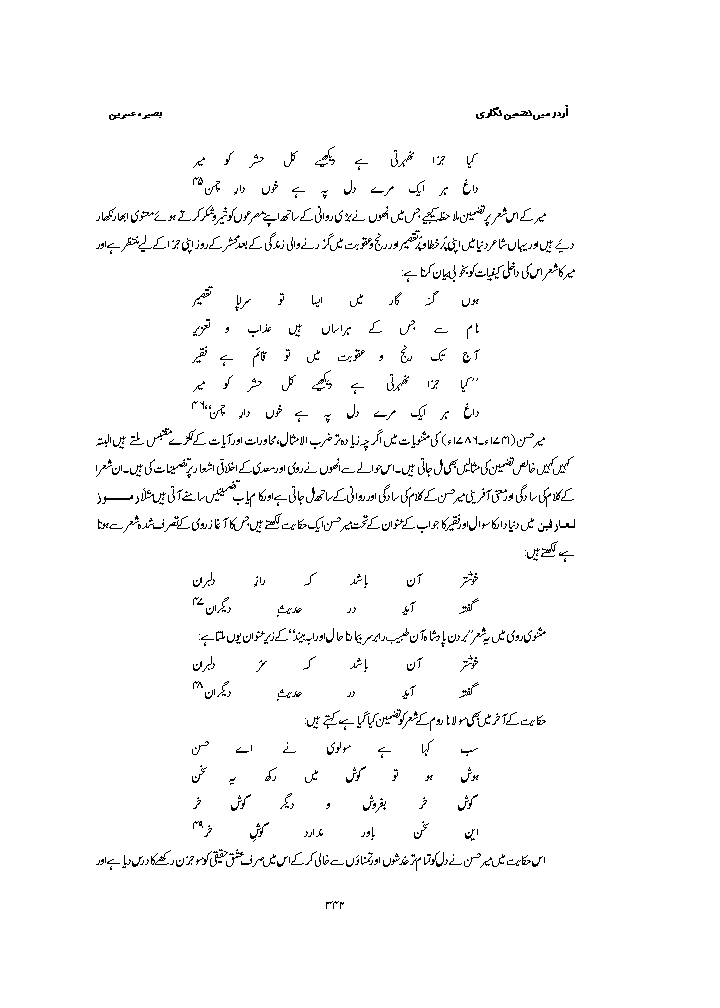 اُردو میں تضمین نگاری
بصیرہ عنبرین
کیا جزا ٹھہرتی ہے دیکھیے کل حشر کو میر
داغ ہر ایک مرے دل پہ ہے خوں دارِ چمن۴۵
میر کے اس شعر پر تضمین ملاحظہ کیجیے جس میں انھوں نے بڑی روانی کے ساتھ اپنے مصرعوں کو شیر و شکر کرتے ہوئے معنوی ابھار نکھار
دیے ہیں اور یہاں شاعر دنیا میں اپنی پُر خطا و پُر تقصیر اور رنج و عقوبت میں گزرنے والی زندگی کے بعد محشر کے روز اپنی جزا کے لیے منتظر ہے اور
میر کا شعر اس کی داخلی کیفیات کو بخوبی بیان کرتا ہے:
ہوں گنہ گار میں ایسا تو سراپا تقصیر
نام سے جس کے ہراساں ہیں عذاب و تعزیر
آج تک رنج و عقوبت میں تو قائم ہے فقیر
”کیا جزا ٹھہرتی ہے دیکھیے کل حشر کو میر
داغ ہر ایک مرے دل پہ ہے خوں دارِ چمن“۴۶
میر حسن (۱۷۴۱ء۔۱۷۸۶ء) کی مثنویات میں اگرچہ زیادہ تر ضرب الامثال، محاورات اور آیات کے ٹکڑے مقتبس ملتے ہیں البتہ
کہیں کہیں خالص تضمین کی مثالیں بھی مل جاتی ہیں۔ اس حوالے سے انھوں نے رومی اور سعدی کے اخلاقی اشعار پر تضمینات کی ہیں۔ ان شعرا
کے کلام کی سادگی اور معنی آفرینی میر حسن کے کلام کی سادگی اور روانی کے ساتھ مل جاتی ہے اور کامیاب تضمینیں سامنے آتی ہیں مثلاً رموز
العارفین میں دنیادار کا سوال اور فقیر کا جواب کے عنوان کے تحت میر حسن ایک حکایت لکھتے ہیں جس کا آغاز رومی کے تصرف شدہ شعر سے ہوتا
ہے لکھتے ہیں:
خوشتر آن باشد کہ رازِ دلبران
گفتہ آید در حدیثِ دیگران۴۷
مثنوی رومی میں یہ شعر ”بردن پادشاہ آن طبیب را بر سر بیمار تا حال او را بہ بیند“ کے زیرِ عنوان یوں ملتا ہے:
خوشتر آن باشد کہ سرِّ دلبران
گفتہ آید در حدیثِ دیگران۴۸
حکایت کے آخر میں بھی مولانا روم کے شعر کو تضمین کیا گیا ہے کہتے ہیں:
سب کہا ہے مولوی نے اے حسن
ہوش ہو تو گوش میں رکھ یہ سخن
گوش خر بفروش و دیگر گوش خر
این سخن باور ندارد گوشِ خر۴۹
اس حکایت میں میر حسن نے دل کو تمام تر خدشوں اور تمناؤں سے خالی کر کے اس میں صرف عشقِ حقیقی کو موجزن رکھنے کا درس دیا ہے اور
۳۴۲